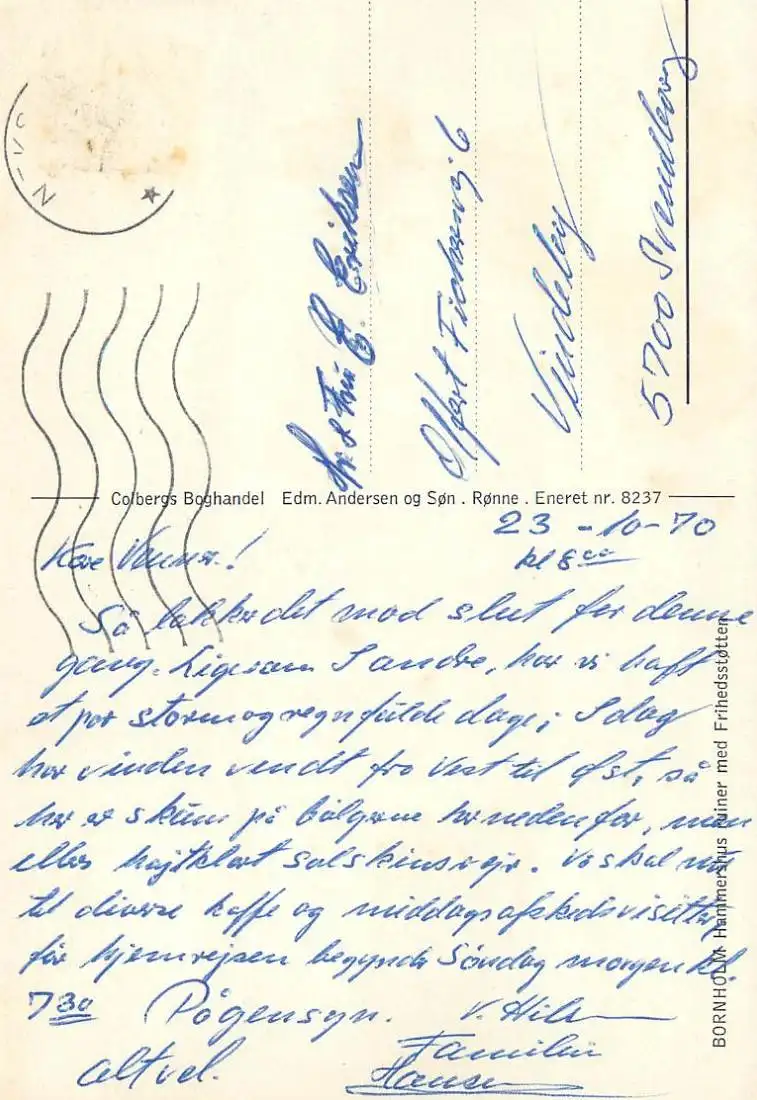 Hr. & Fru E. Eriksen
Vindeby
5700 Svendborg
Colbergs Boghandel Edm. Andersen og Søn . Rønne . Eneret nr. 8237
23 - 10 - 70
kl 8 00
Kære Venner!
Så lakker det mod slut for denne
gang. Ligesom I andre, har vi haft
et par storm og regnfulde dage; I dag
har vinden vendt fra Vest til Øst, så
her er skum på bølgerne her nedenfor, men
ellers højtklart solskinsvejr. Vi skal nu
til diverse kaffe og middagsafskedsvisitter,
før hjemrejsen begynder Søndag morgen kl.
7 30 På gensyn. V. Hils
Familien
alt vel. Hansen
BORNHOLM Hammershus ruiner med Frihedsstøtten